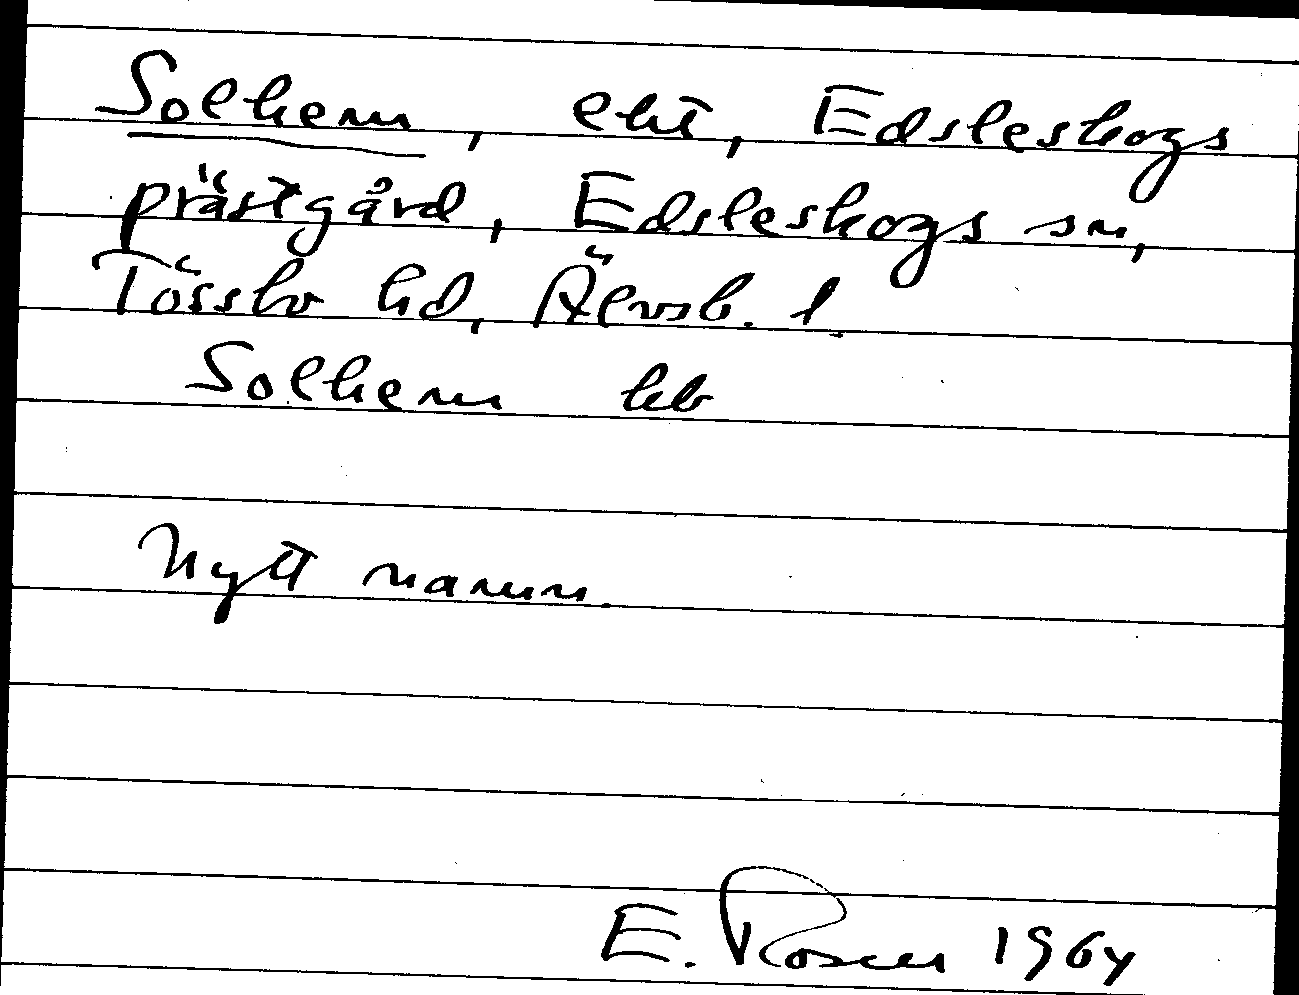 Solhem, eht, Edsleskogs
prästgård, Edsleskogs sn,
Tössbo hd, Älvsb. l.
Solhem kb
Nytt namn.
E. Rosen 1964